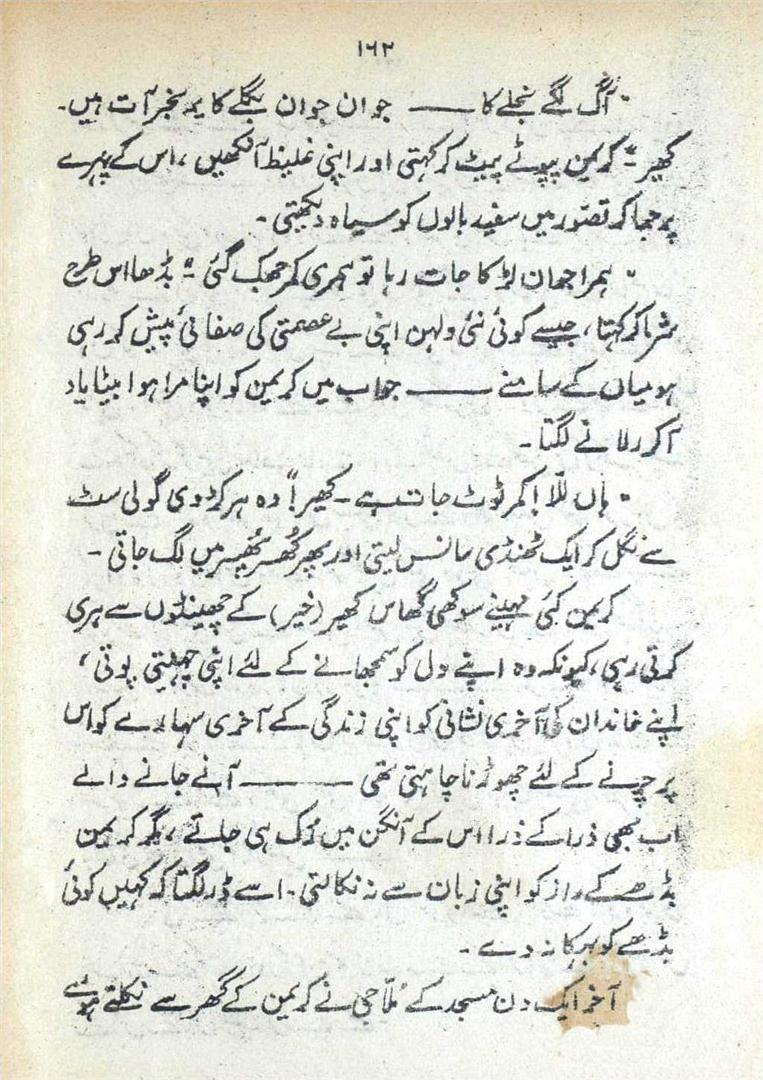 ۱۶۲
"آگ لگے نجلے کا ــــــ جوان جوان بنگلے کا یہ نجر آت ہیں۔
کھیر۔" کریمن پپوٹے پیٹ کر کہتی اور اپنی غلیظ آنکھیں، اس کے چہرے
پر جما کر تصوّر میں سفید بالوں کو سیاہ دیکھتی۔
"ہمرا جھان لڑکا جات رہا تو ہمری کمر جھک گئی۔" بڈھا اس طرح
شرما کر کہتا، جیسے کوئی نئی دلہن اپنی بے عصمتی کی صفائی پیش کر رہی
ہو میاں کے سامنے ــــــ جواب میں کریمن کو اپنا مرا ہوا بیٹا یاد
آکر رلانے لگتا۔
"ہاں للّا! کمر ٹوٹ جات ہے۔ کھیر!" وہ ہر کڑوی گولی سٹ
سے نگل کر ایک ٹھنڈی سانس لیتی اور پھر کُھسر پُھسر میں لگ جاتی۔
کریمن کئی مہینے سوکھی گھاس کھیر (خیر) کے چھینٹوں سے ہری
کرتی رہی، کیونکہ وہ اپنے دل کو سمجھانے کے لئے اپنی چہیتی پوتی،
اپنے خاندان کی آخری نشانی کو اپنی زندگی کے آخری سہارے کو اس
پر چرنے کے لئے چھوڑنا چاہتی تھی ــــــ آنے جانے والے
اب بھی ذرا کے ذرا اس کے آنگن میں رُک ہی جاتے، مگر کریمن
بڈھے کے راز کو اپنی زبان سے نہ نکالتی۔ اسے ڈر لگتا کہ کہیں کوئی
بڈھے کو بہکا نہ دے۔
آخر ایک دن مسجد کے مُلّا جی نے کریمن کے گھر سے نکلتے ہوئے